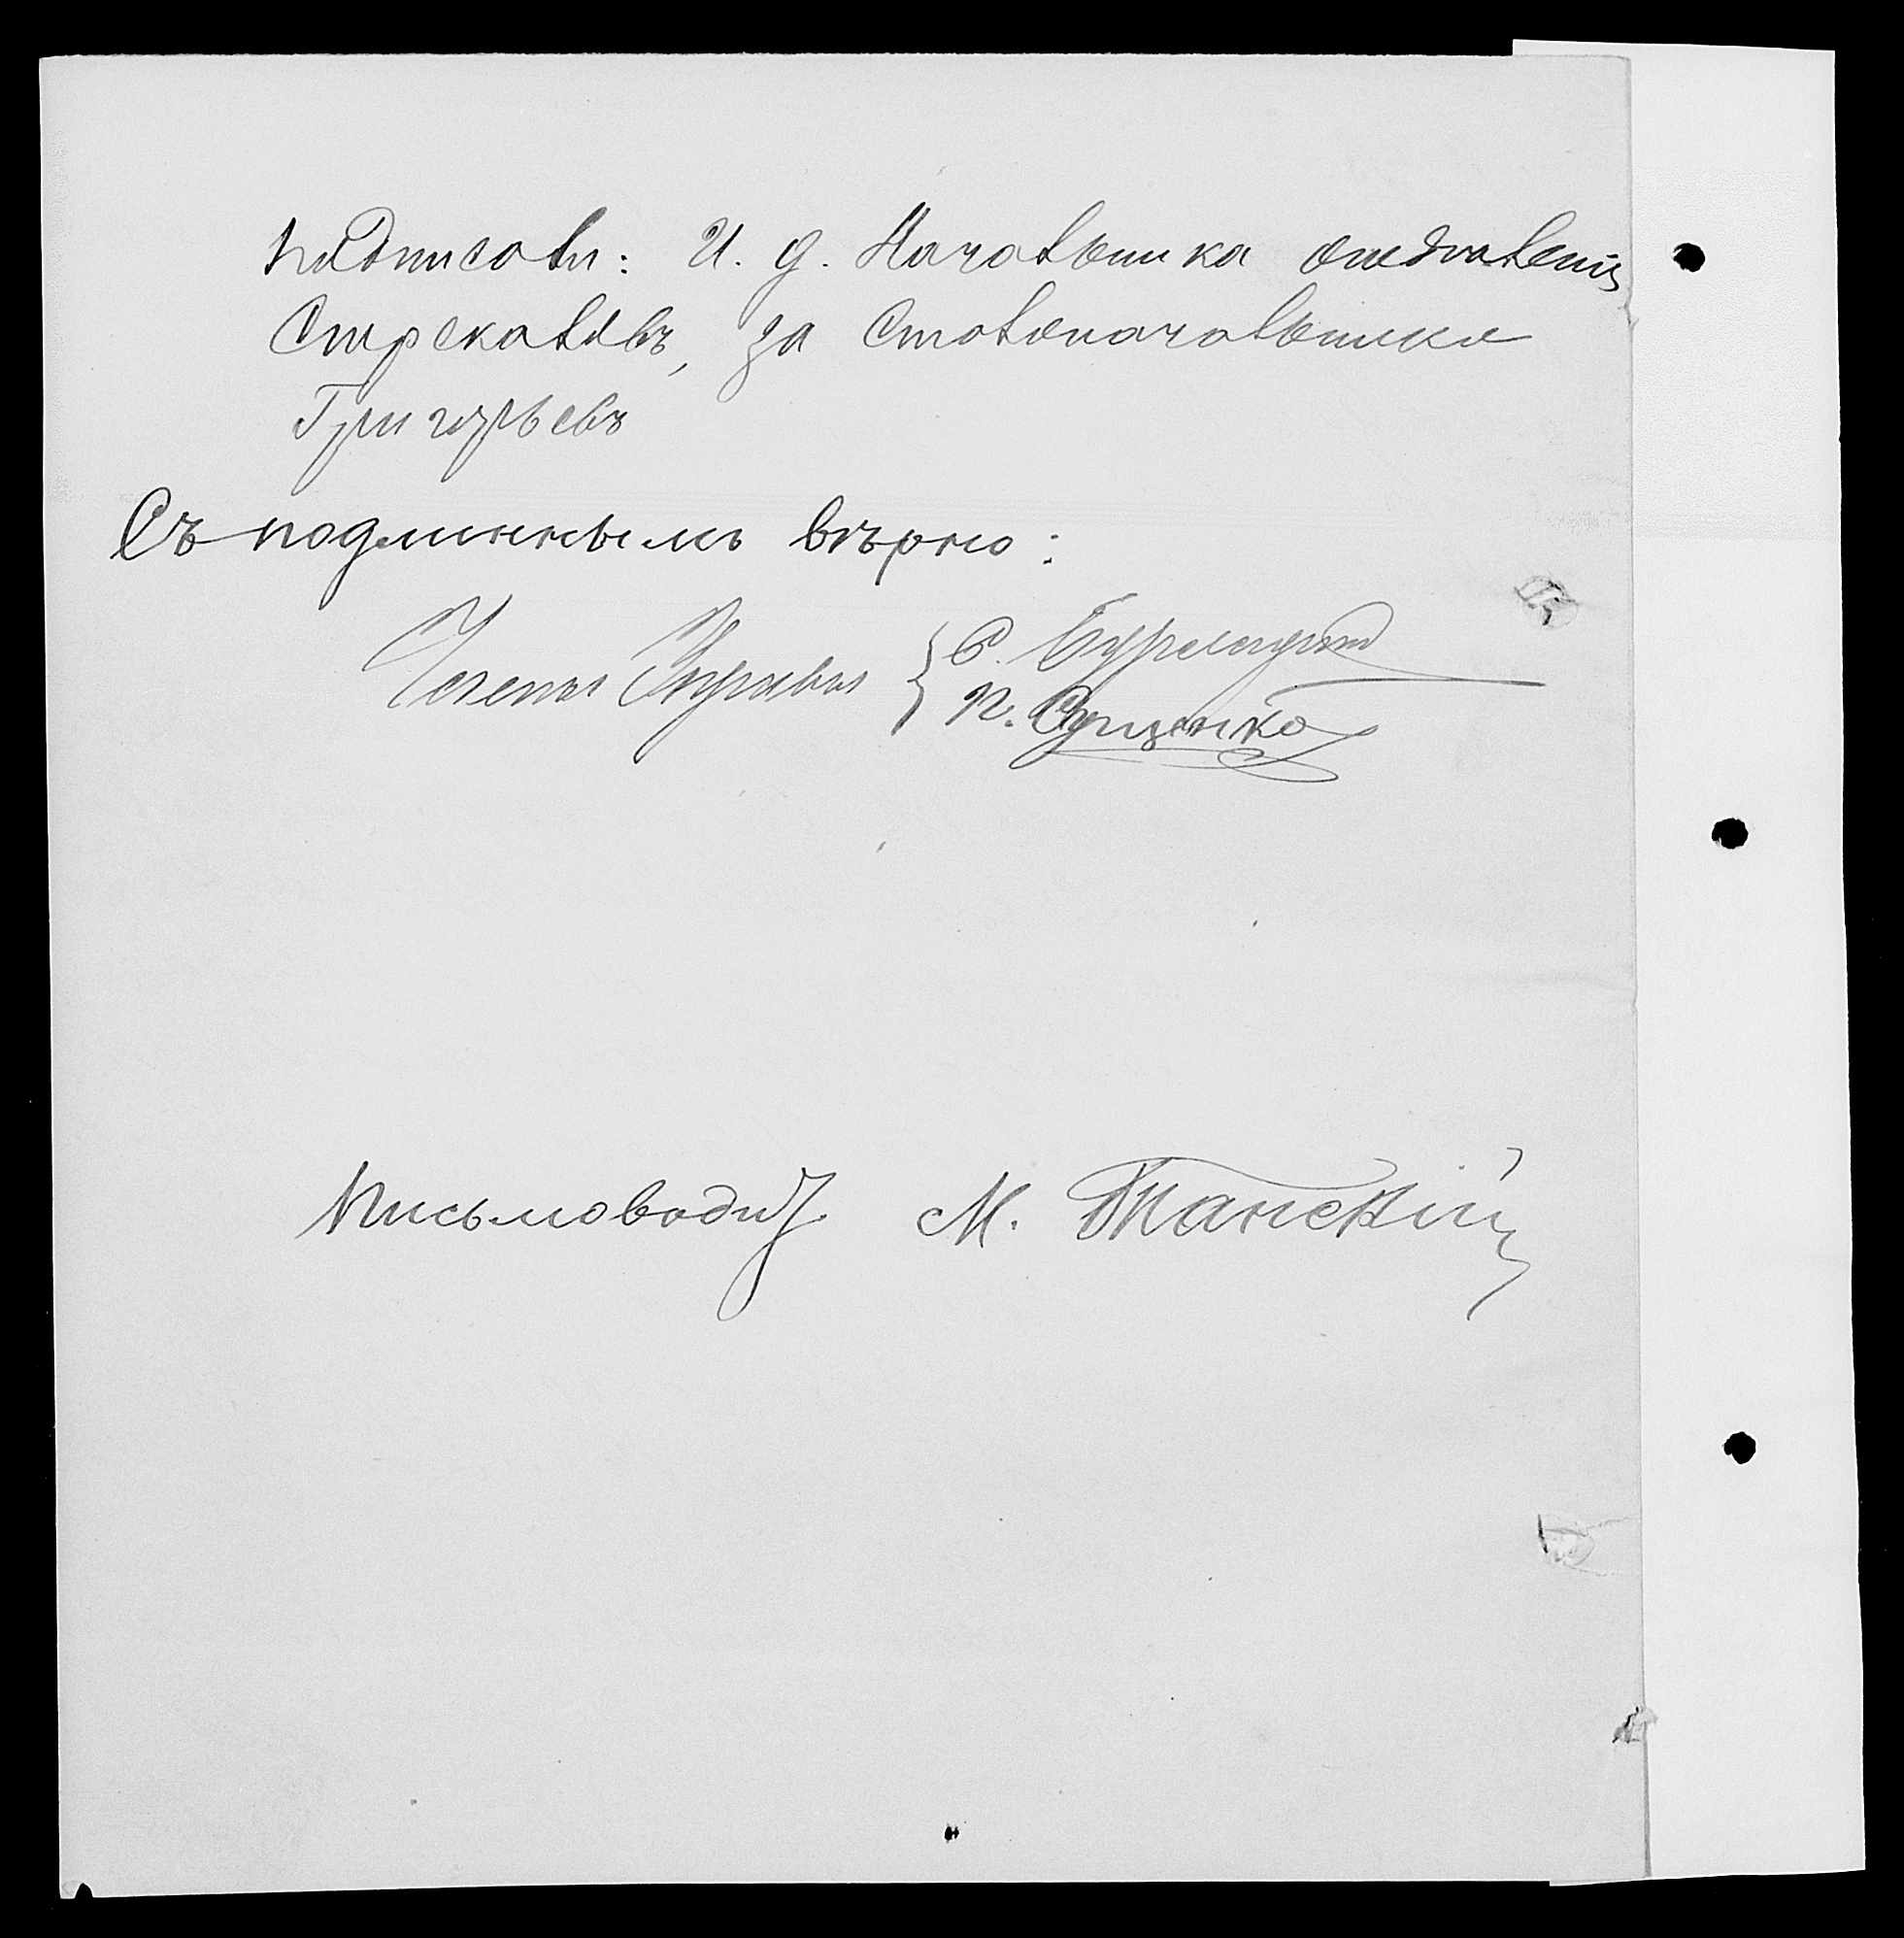 подписали: И. д. Начальника отдѣленія
Стрекаловъ, за Столоначальника
Григорьевъ
Съ подлиннымъ вѣрно:
Члены Управы { С.
П. Сущенко
Письмоводит. М. Танскій